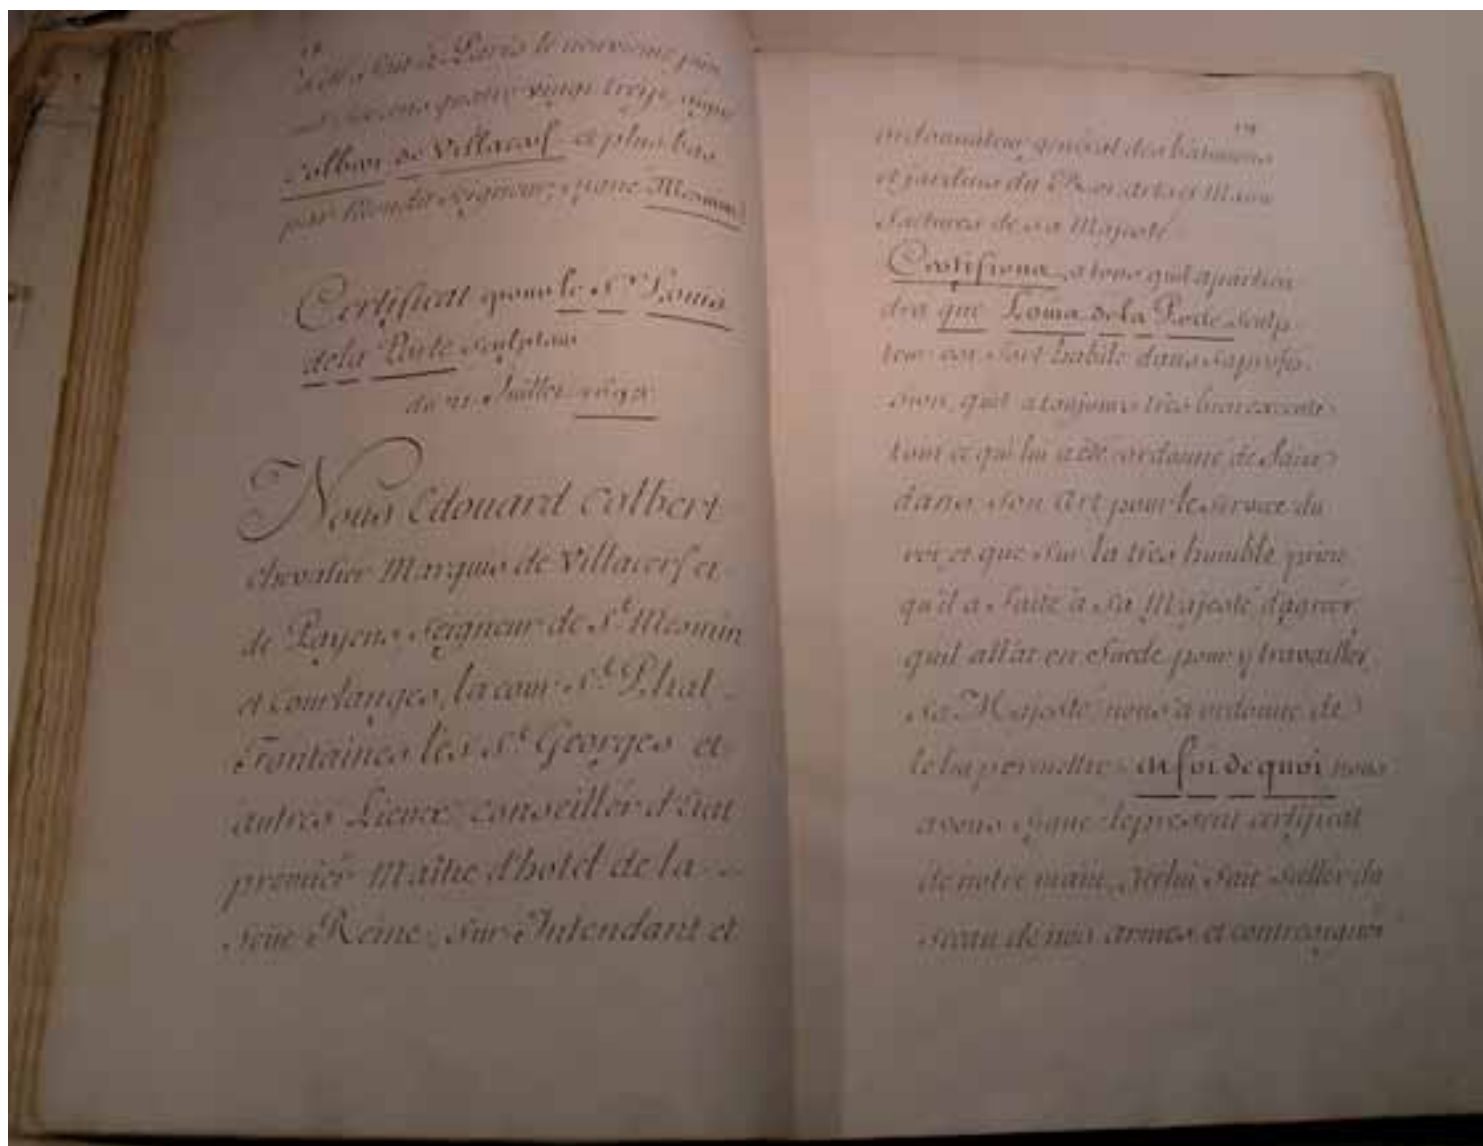 18
à Paris le neuvieme juin
mil six cens quatre vingt treize, signé
Colbert de Villacerf et plus bas
par Mondit Seigneur, signé Mesmin
Certificat pour le S.r Louis
de la Porte sculpteur
du 21. Juillet 1693
Nous Edouard Colbert
chevalier Marquis de Villacerf et
de Payens, Seigneur de S.t Mesmin
et Courlanges, la cour S.t Phal
Fontaines les S.t Georges et
autres Lieux, conseiller d'Etat
premier Maître d'hotel de la
feüe Reine, Sur-Intendant et
19
ordonnateur général des bâtimens
et jardins du Roi, arts et Manu
factures de Sa Majesté
Certifions a tous qu'il apartien
dra que Louis de la Porte sculp-
teur est fort habile dans sa profes-
sion, quil a toujours très bien executé
tout ce qui lui a été ordonné de faire
dans son art pour le service du
roi, et que sur la tres humble priere
qu'il a faite à Sa Majesté d'agréer
quil allât en Suede pour y travailler
Sa Majesté nous a ordonné de
le lui permettre en foi de quoi nous
avons signé le present certificat
de notre main, icelui fait sceller du
sceau de nos armes et contresigner